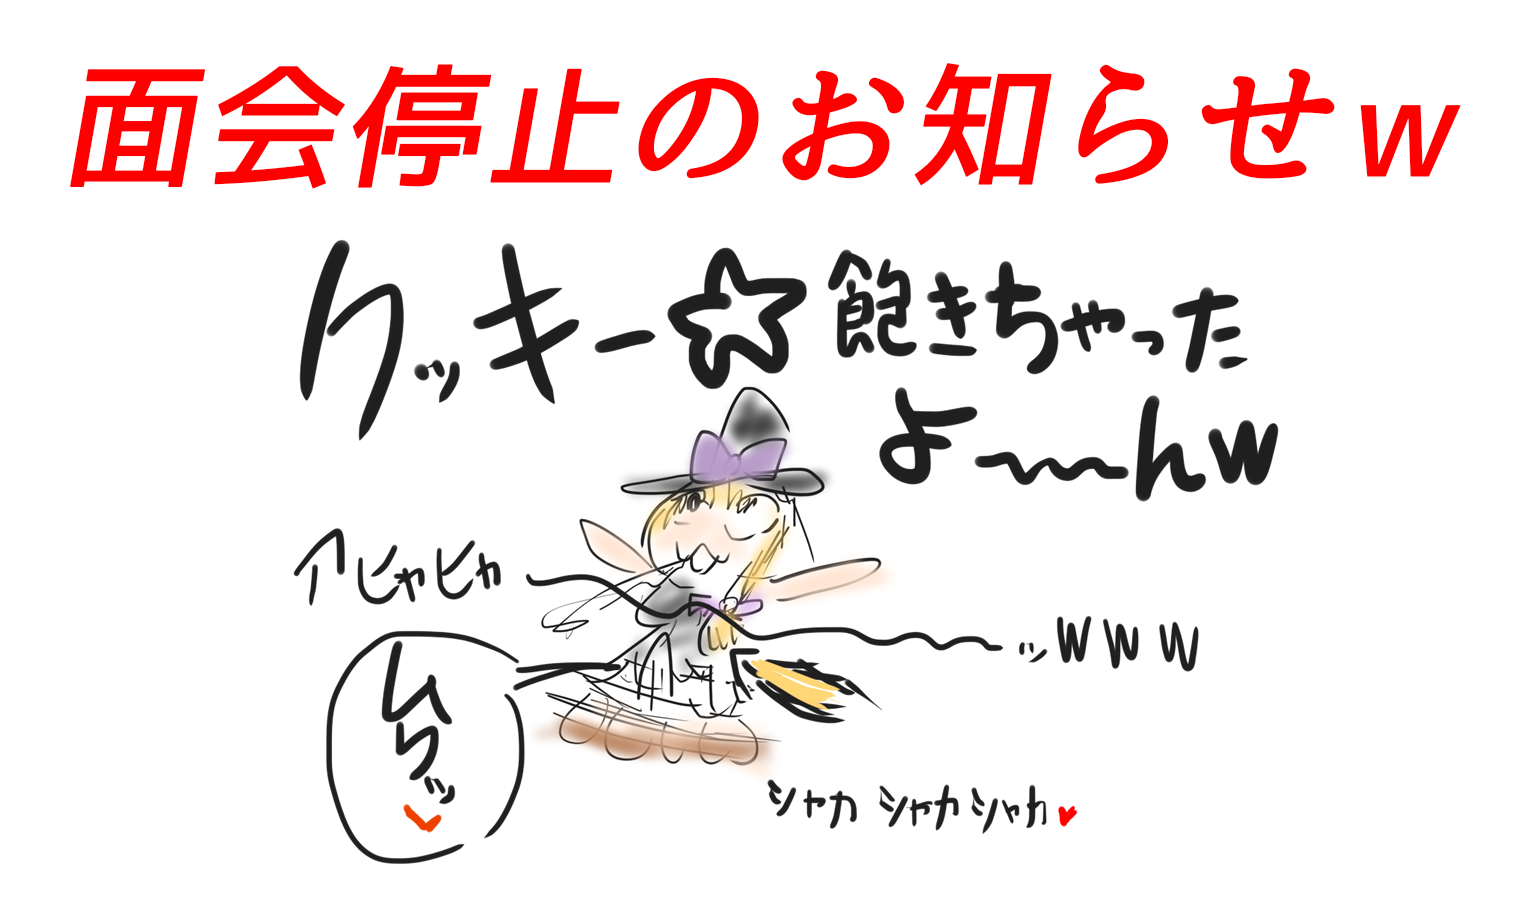 面会停止のお知らせw
クッキー☆飽きちゃった
よ〜〜んw
アヒャヒャ
ッwww
ムクッ
シャカシャカシャカ♥